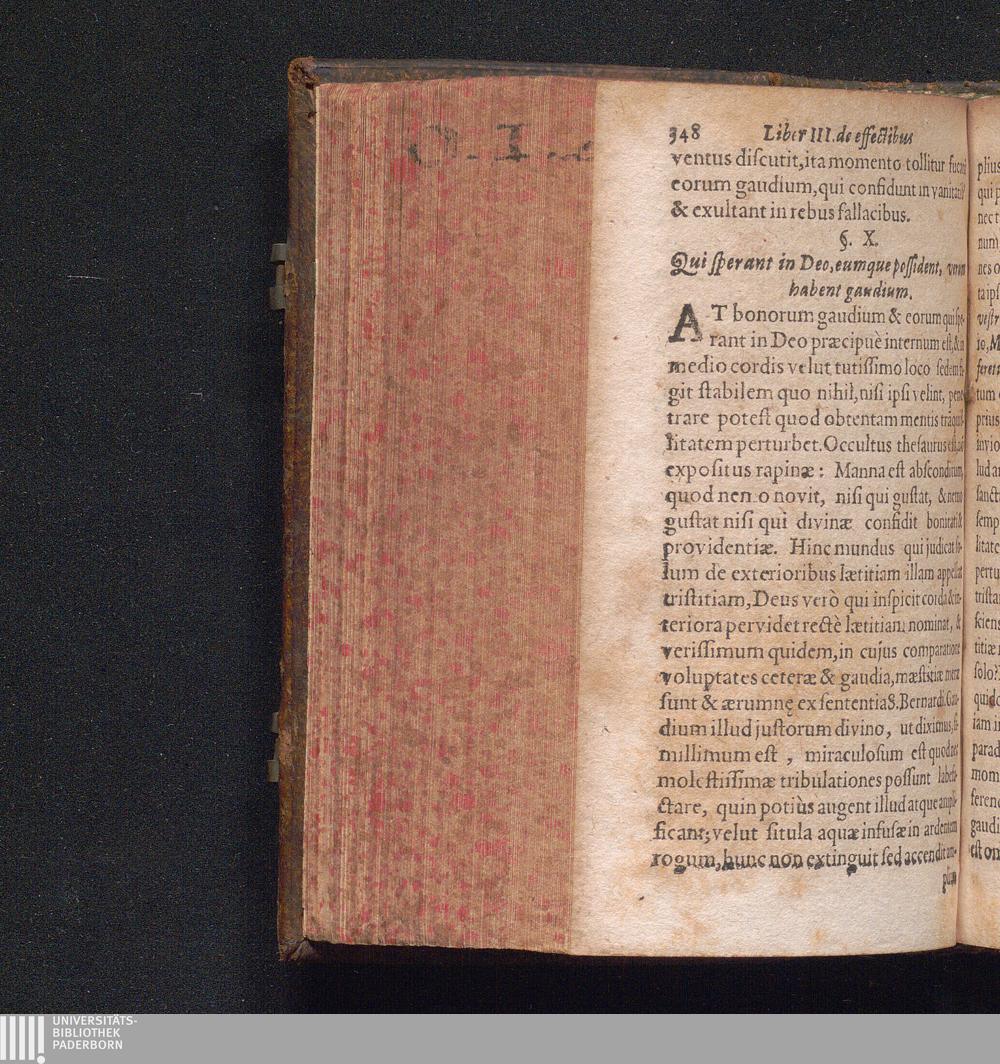 348 Liber III. de effectibus
ventus discutit, ita momento tollitur
eorum gaudium, qui confidunt in vanitate
& exultant in rebus fallacibus.
§. X.
Qui sperant in Deo, eumque possident, verum
habent gaudium.
AT bonorum gaudium & eorum qui spe-
rant in Deo præcipuè internum est, & in
medio cordis velut tutissimo loco sedem fi-
git stabilem quo nihil, nisi ipsi velint, pene
trare potest quod obtentam mentis tranqui-
litatem perturbet. Occultus thesaurus est,
expositus rapinæ: Manna est absconditum,
quod nen o novit, nisi qui gustat, & nemo
gustat nisi qui divinæ confidit bonitati &
providentiæ. Hinc mundus qui judicat so-
lum de exterioribus lætitiam illam appellat
tristitiam, Deus verò qui inspicit corda & in-
teriora pervidet rectè lætitiam nominat, &
verissimum quidem, in cujus comparatione
voluptates ceteræ & gaudia, mæstitiæ meræ
sunt & ærumnę ex sententia S. Bernardi. Gau-
dium illud justorum divino, ut diximus, si-
millimum est, miraculosum est quod nec
molestissimæ tribulationes possunt labefa-
ctare, quin potiùs augent illud atque ampli-
ficant; velut situla aquæ infusæ in ardentem
rogum, hunc non extinguit sed accendit am-
plius
plius
qui p
nec t
nes o
ta ips
vestr
io, M
feret
tum
prius
invio
lud a
sancti
semp
litate
pertu
trista
scien
titiæ
solo?
quid
iam i
parad
mom
feren
gaudi
est om
UNIVERSITÄTS-
BIBLIOTHEK
PADERBORN